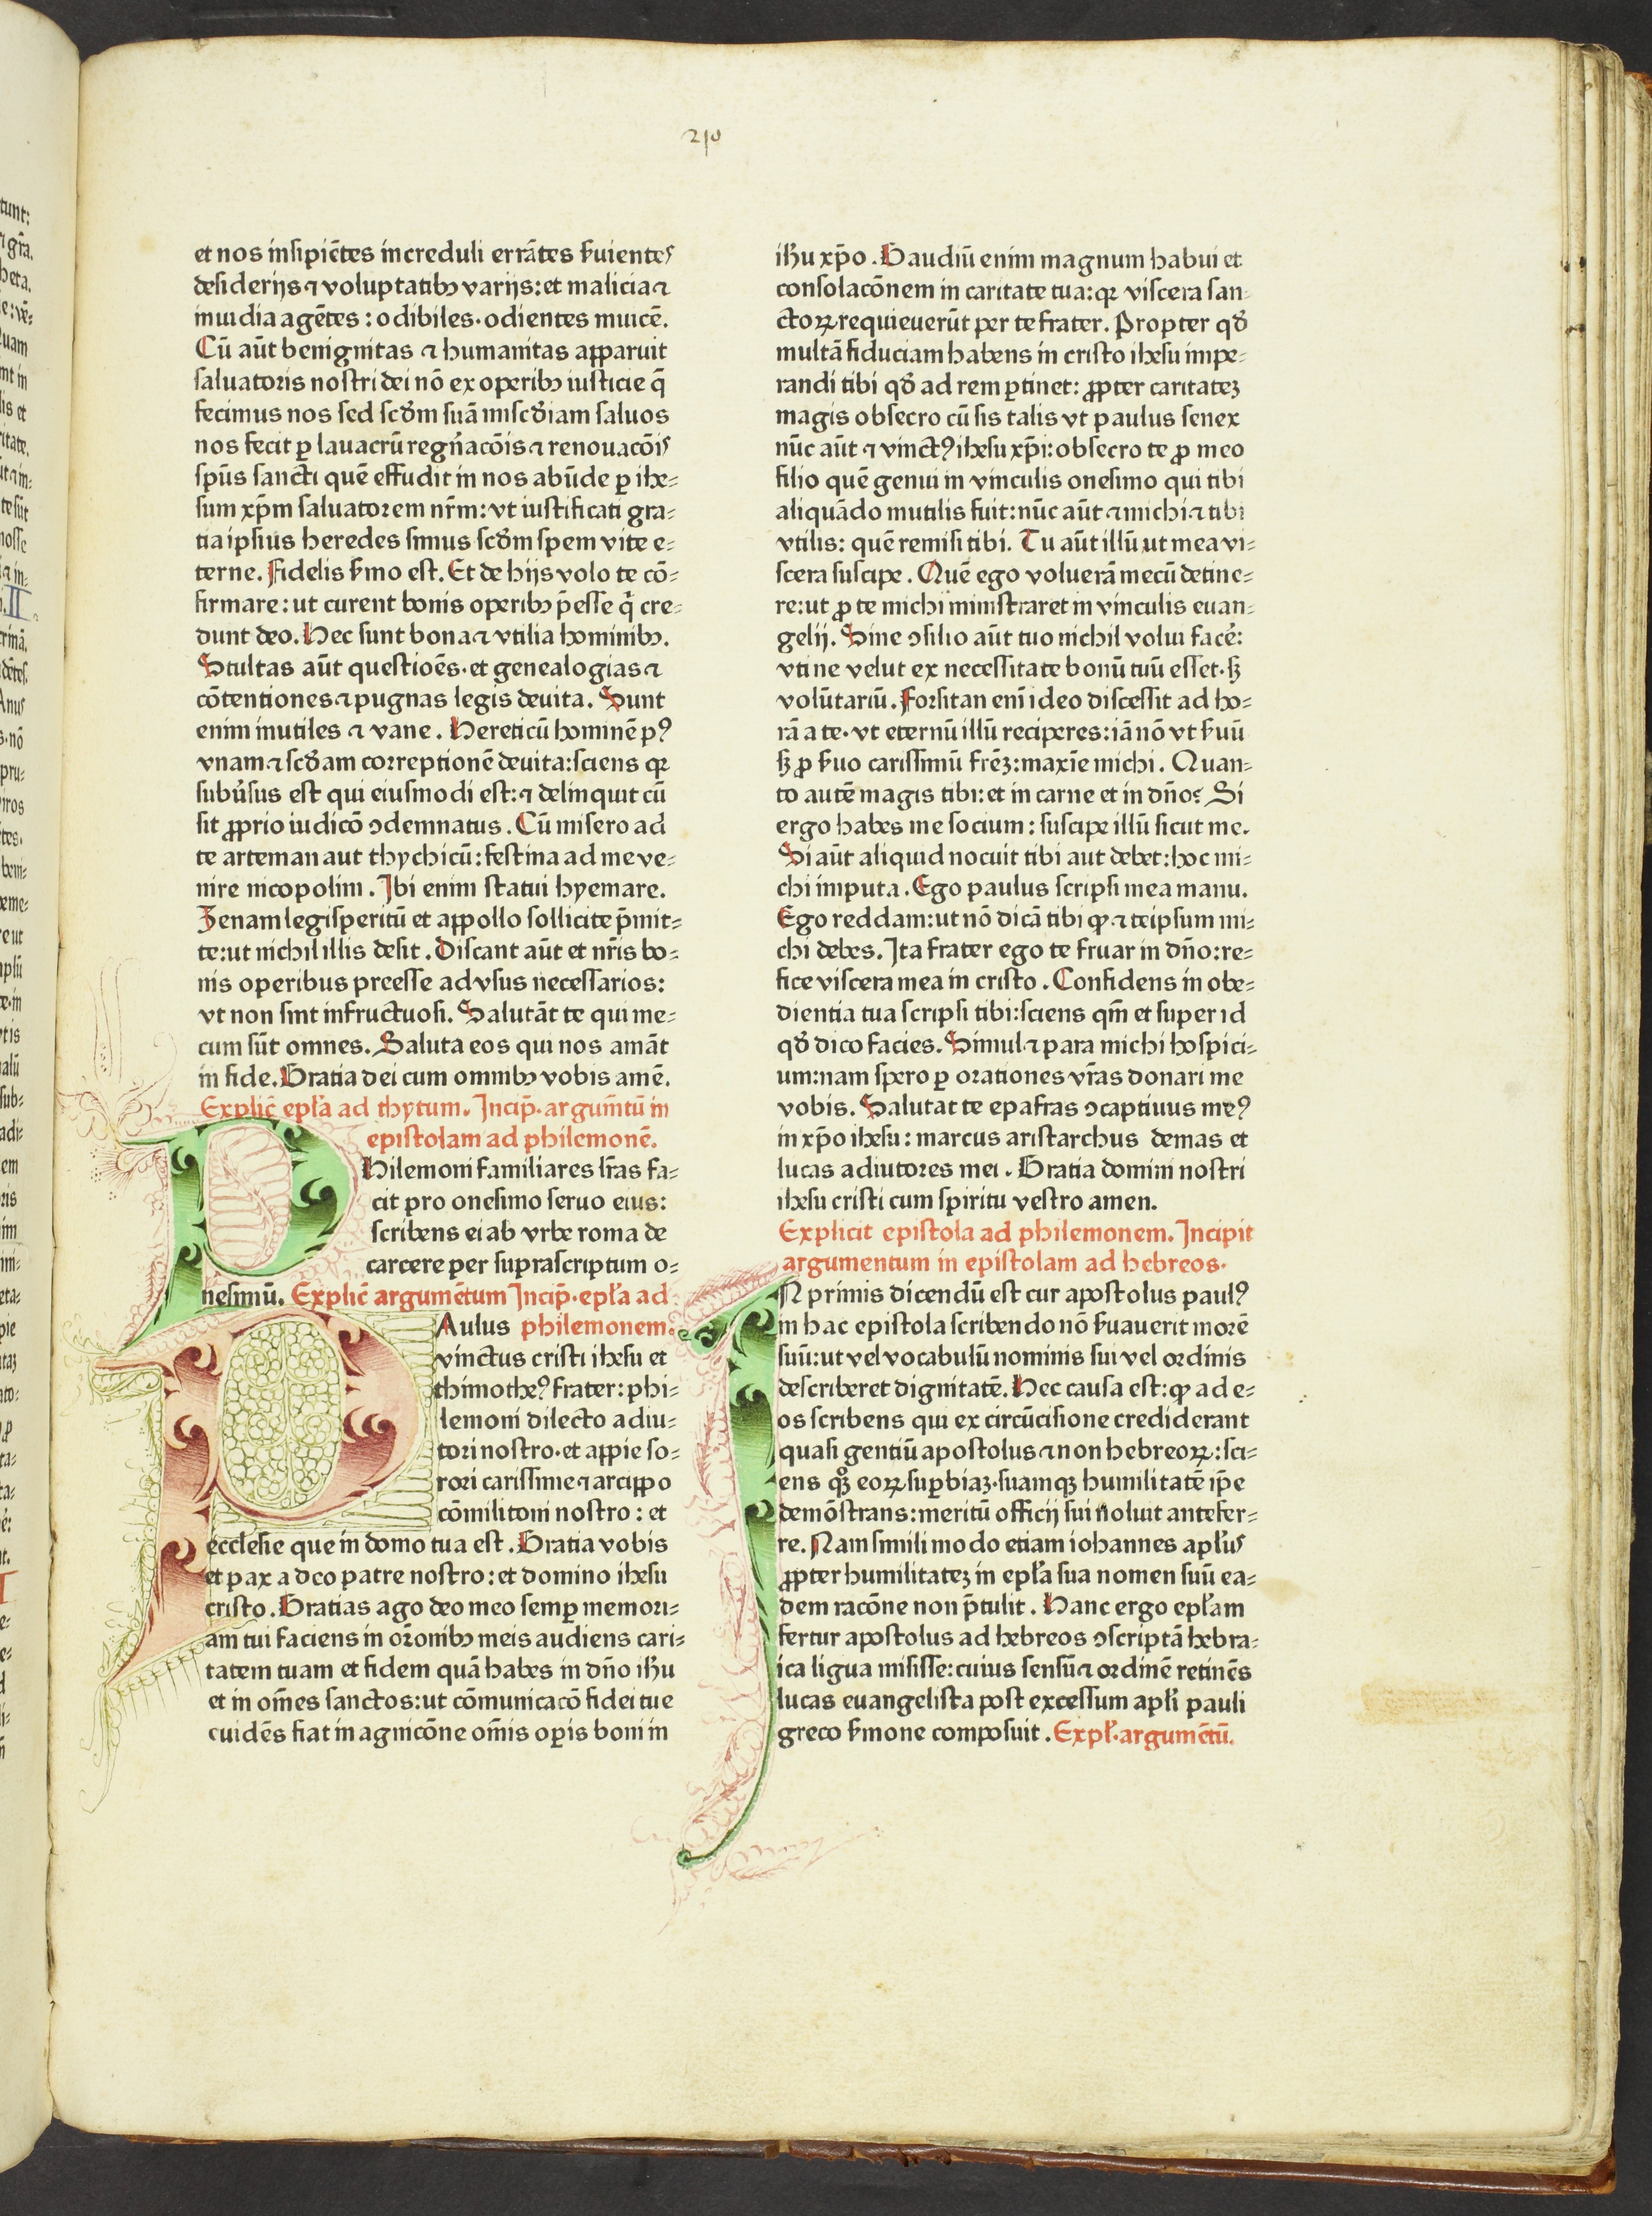 210
et nos insipiētes increduli errātes ẜuientes
desiderijs ⁊ voluptatibꝯ varijs: et malicia ⁊
inuidia agētes: odibiles· odientes inuicē.
Cū aūt benignitas ⁊ humanitas apparuit
saluatoris nostri dei nō ex operibꝯ iusticie q̄
fecimus nos sed scd̄m suā misc̄diam saluos
nos fecit ꝑ lauacrū regn̄acōis ⁊ renouacōis
spūs sancti quē effudit in nos abūde ꝑ ihe⸗
sum xp̄m saluatorem nr̄m: vt iustificati gra⸗
tia ipsius heredes simus scd̄m spem vite e⸗
terne. Fidelis ẜmo est. Et de hijs volo te cō⸗
firmare: ut curent bonis operibꝯ p̄esse q̄ cre⸗
dunt deo. Hec sunt bona ⁊ vtilia hominibꝯ.
Stultas aūt questioēs· et genealogias ⁊
cōtentiones ⁊ pugnas legis deuita. Sunt
enim inutiles ⁊ vane. Hereticū hominē pꝰ
vnam ⁊ scd̄am correptionē deuita: sciens qꝛ
subūsus est qui eiusmodi est: ⁊ delinquit cū
sit ꝓprio iudicō ↄdemnatus. Cū misero ad
te arteman aut thychicū: festina ad me ve⸗
nire nicopolim. Ibi enim statui hyemare.
Zenam legisperitū et appollo sollicite p̄mit⸗
te: ut nichil illis desit. Discant aūt et nr̄is bo⸗
nis operibus preesse ad vsus necessarios:
vt non sint infructuosi. Salutāt te qui me⸗
cum sūt omnes. Saluta eos qui nos amāt
in fide. Gratia dei cum omnibꝯ vobis amē.
Explic̄ epl̄a ad thytum. Incip̄· argum̄tū in
epistolam ad philemonē.
PHilemoni familiares lr̄as fa⸗
cit pro onesimo seruo eius:
scribens ei ab vrbe roma de
carcere per suprascriptum o⸗
nesimū. Explic̄ argumētum Incip̄· epl̄a ad
PAulus philemonem.
vinctus cristi ihesu et
thimotheꝰ frater: phi⸗
lemoni dilecto adiu⸗
tori nostro· et appie so⸗
rori carissime ⁊ arcippo
cōmilitoni nostro: et
ecclesie que in domo tua est. Gratia vobis
et pax a deo patre nostro: et domino ihesu
cristo. Gratias ago deo meo semꝑ memori⸗
am tui faciens in or̄onibꝯ meis audiens cari⸗
tatem tuam et fidem quā habes in dn̄o ihū
et in om̄es sanctos: ut cōmunicacō fidei tue
euidēs fiat in agnicōne om̄is oꝑis boni in
ihū xp̄o. Gaudiū enim magnum habui et
consolacōnem in caritate tua: qꝛ viscera san⸗
ctoꝝ requieuerūt per te frater. Propter qd̄
multā fiduciam habens in cristo ihesu impe⸗
randi tibi qd̄ ad rem ꝑtinet: ꝓpter caritateꝫ
magis obsecro cū sis talis vt paulus senex
nūc aūt ⁊ vinctꝰ ihesu xp̄i: obsecro te ꝓ meo
filio quē genui in vinculis onesimo qui tibi
aliquādo inutilis fuit: nūc aūt ⁊ michi ⁊ tibi
vtilis: quē remisi tibi. Tu aūt illū ut mea vi⸗
scera suscipe. Quē ego voluerā mecū detine⸗
re: ut ꝓ te michi ministraret in vinculis euan⸗
gelij. Sine ↄsilio aūt tuo nichil volui facē:
vti ne velut ex necessitate bonū tuū esset· sꝫ
volūtariū. Forsitan enī ideo discessit ad ho⸗
rā a te· vt eternū illū reciperes: iā nō vt ẜuū
sꝫ ꝓ ẜuo carissimū frēꝫ: maxīe michi. Quan⸗
to autē magis tibi: et in carne et in dn̄o? Si
ergo habes me socium: suscipe illū sicut me.
Si aūt aliquid nocuit tibi aut debet: hoc mi⸗
chi imputa. Ego paulus scripsi mea manu.
Ego reddam: ut nō dicā tibi ꝙ ⁊ teipsum mi⸗
chi debes. Ita frater ego te fruar in dn̄o: re⸗
fice viscera mea in cristo. Confidens in obe⸗
dientia tua scripsi tibi: sciens qm̄ et super id
qd̄ dico facies. Simul ⁊ para michi hospici⸗
um: nam spero ꝑ orationes vr̄as donari me
vobis. Salutat te epafras ↄcaptiuus meꝰ
in xp̄o ihesu: marcus aristarchus demas et
lucas adiutores mei. Gratia domini nostri
ihesu cristi cum spiritu vestro amen.
Explicit epistola ad philemonem. Incipit
argumentum in epistolam ad hebreos.
IN primis dicendū est cur apostolus paulꝰ
in hac epistola scribendo nō ẜuauerit morē
suū: ut vel vocabulū nominis sui vel ordinis
describeret dignitatē. Hec causa est: ꝙ ad e⸗
os scribens qui ex circūcisione crediderant
quasi gentiū apostolus ⁊ non hebreoꝝ: sci⸗
ens qꝫ eoꝝ suꝑbiaꝫ· suamqꝫ humilitatē ip̄e
demōstrans: meritū officij sui noluit antefer⸗
re. Nam simili modo etiam iohannes apl̄us
ꝓpter humilitateꝫ in epl̄a sua nomen suū ea⸗
dem racōne non p̄tulit. Hanc ergo epl̄am
fertur apostolus ad hebreos ↄscriptā hebra⸗
ica ligua misisse: cuius sensū ⁊ ordinē retinēs
lucas euangelista post excessum apl̄i pauli
greco ẜmone composuit. Expl̄· argumētū.